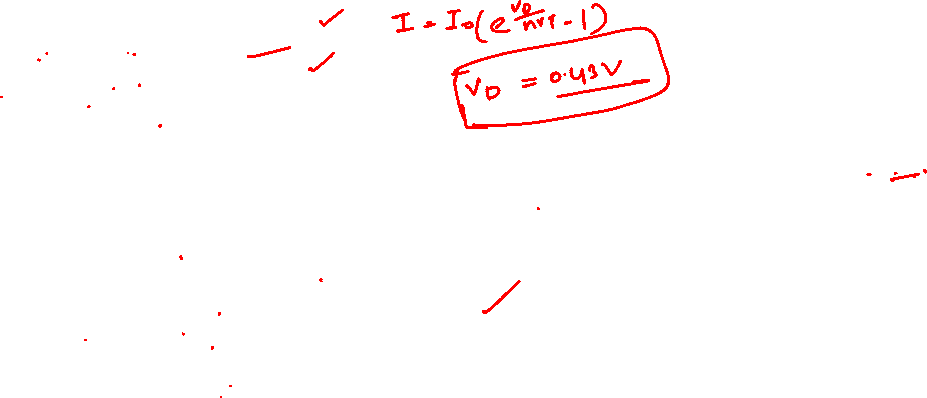 I = I₀(e^(V_D/nV_T) - 1)
V_D = 0.43V